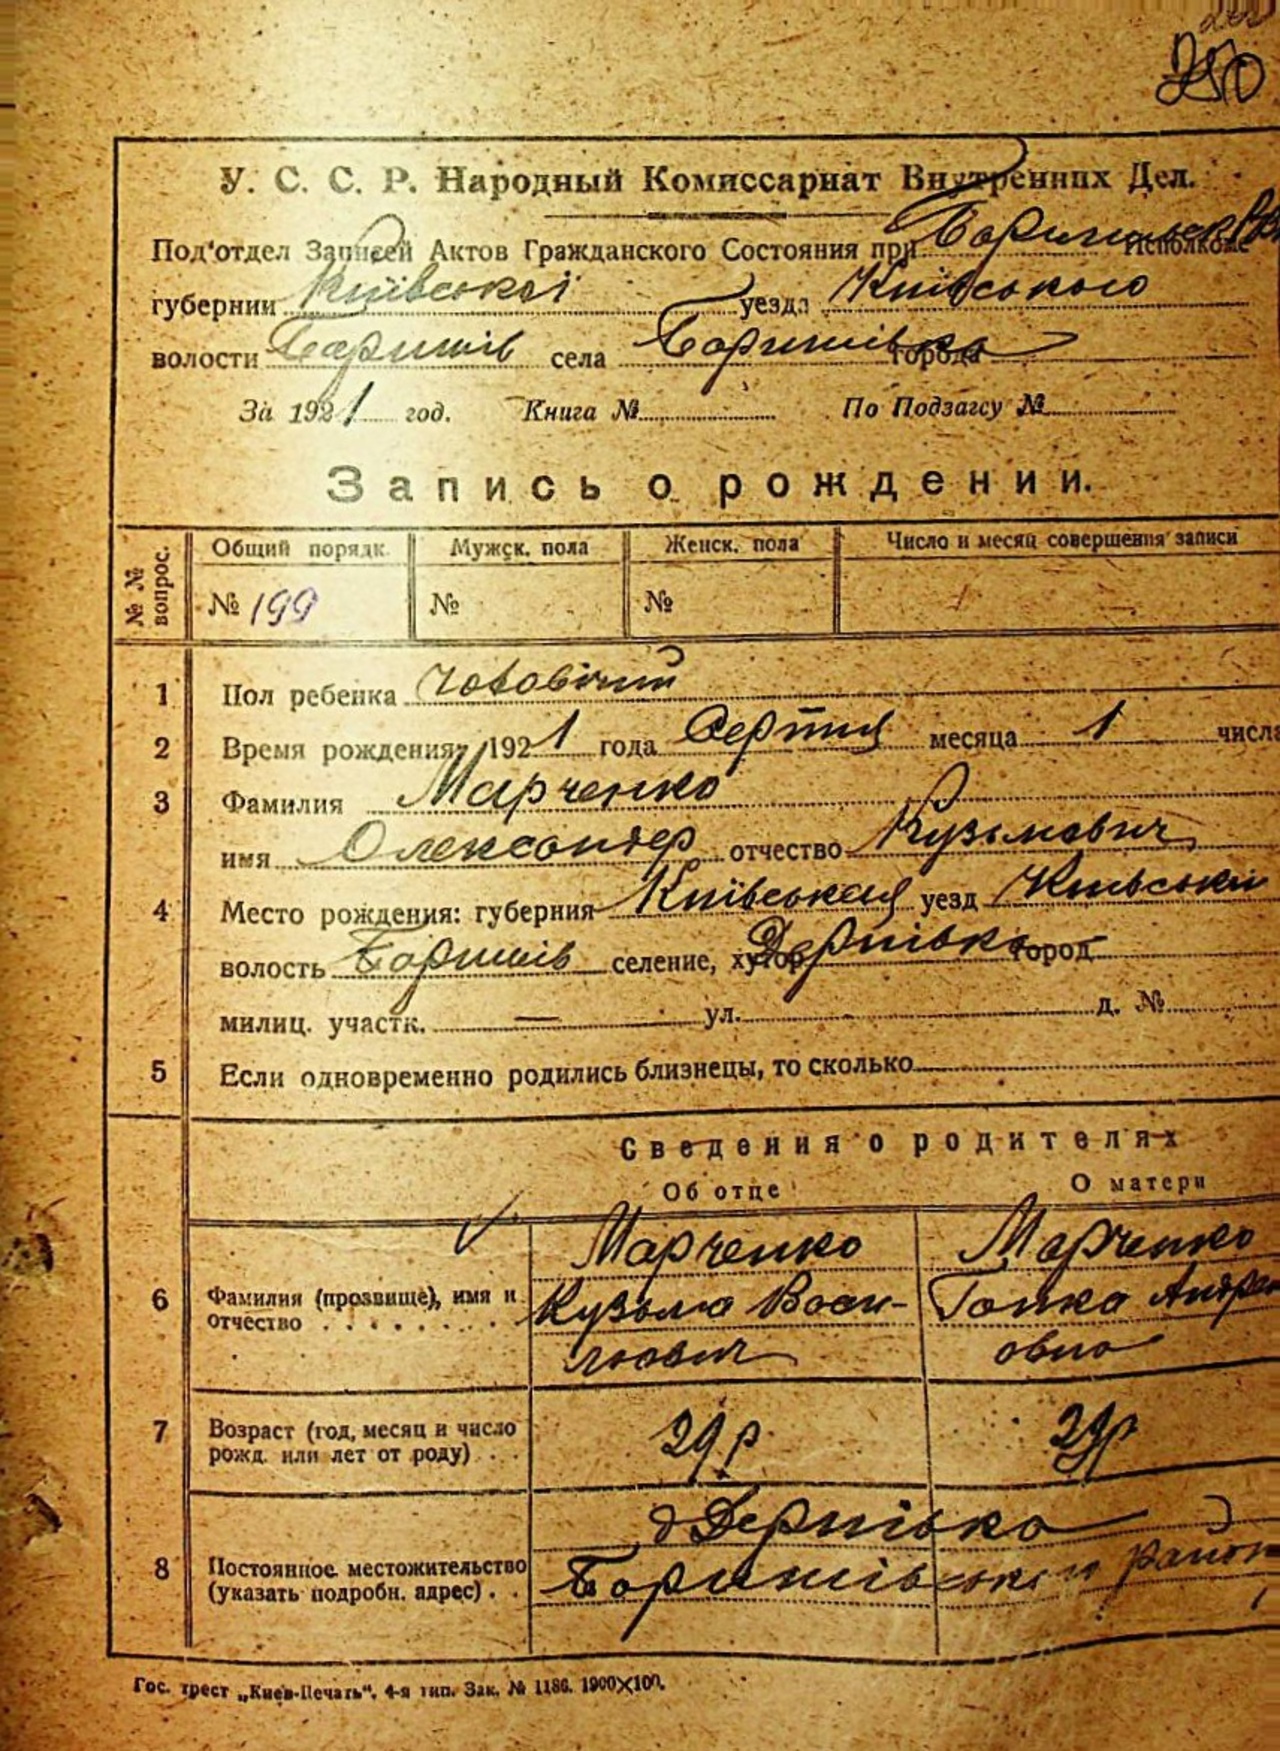 250
У. С. С. Р. Народный Комиссариат Внутренних Дел.
Под'отдел Записей Актов Гражданского Состояния при Исполкоме
губернии Київської уезда Київського
волости Баришів села Баришівка города
За 1921 год. Книга № По Подзагсу №
Запись о рождении.
№ № вопрос. Общий порядк. Мужск. пола Женск. пола Число и месяц совершения записи
№ 199 № №
1 Пол ребенка Чоловічий
2 Время рождения: 1921 года Серпня месяца 1 числа
3 Фамилия Марченко
имя Олександер отчество Кузьмович
4 Место рождения: губерния Київська уезд Київський
волость Баришів селение, хутор Дернівка город
милиц. участк. — ул. д. №
5 Если одновременно родились близнецы, то сколько
Сведения о родителях
Об отце О матери
Марченко Марченко
6 Фамилия (прозвище), имя и Кузьма Васи- Гапка
отчество льович овна
7 Возраст (год, месяц и число 29 р 29 р
рожд. или лет от роду)
д Дернівка
8 Постоянное местожительство Баришівський район
(указать подробн. адрес)
Гос. трест „Киев-Печать“. 4-я тип. Зак. № 1186. 1900×100.